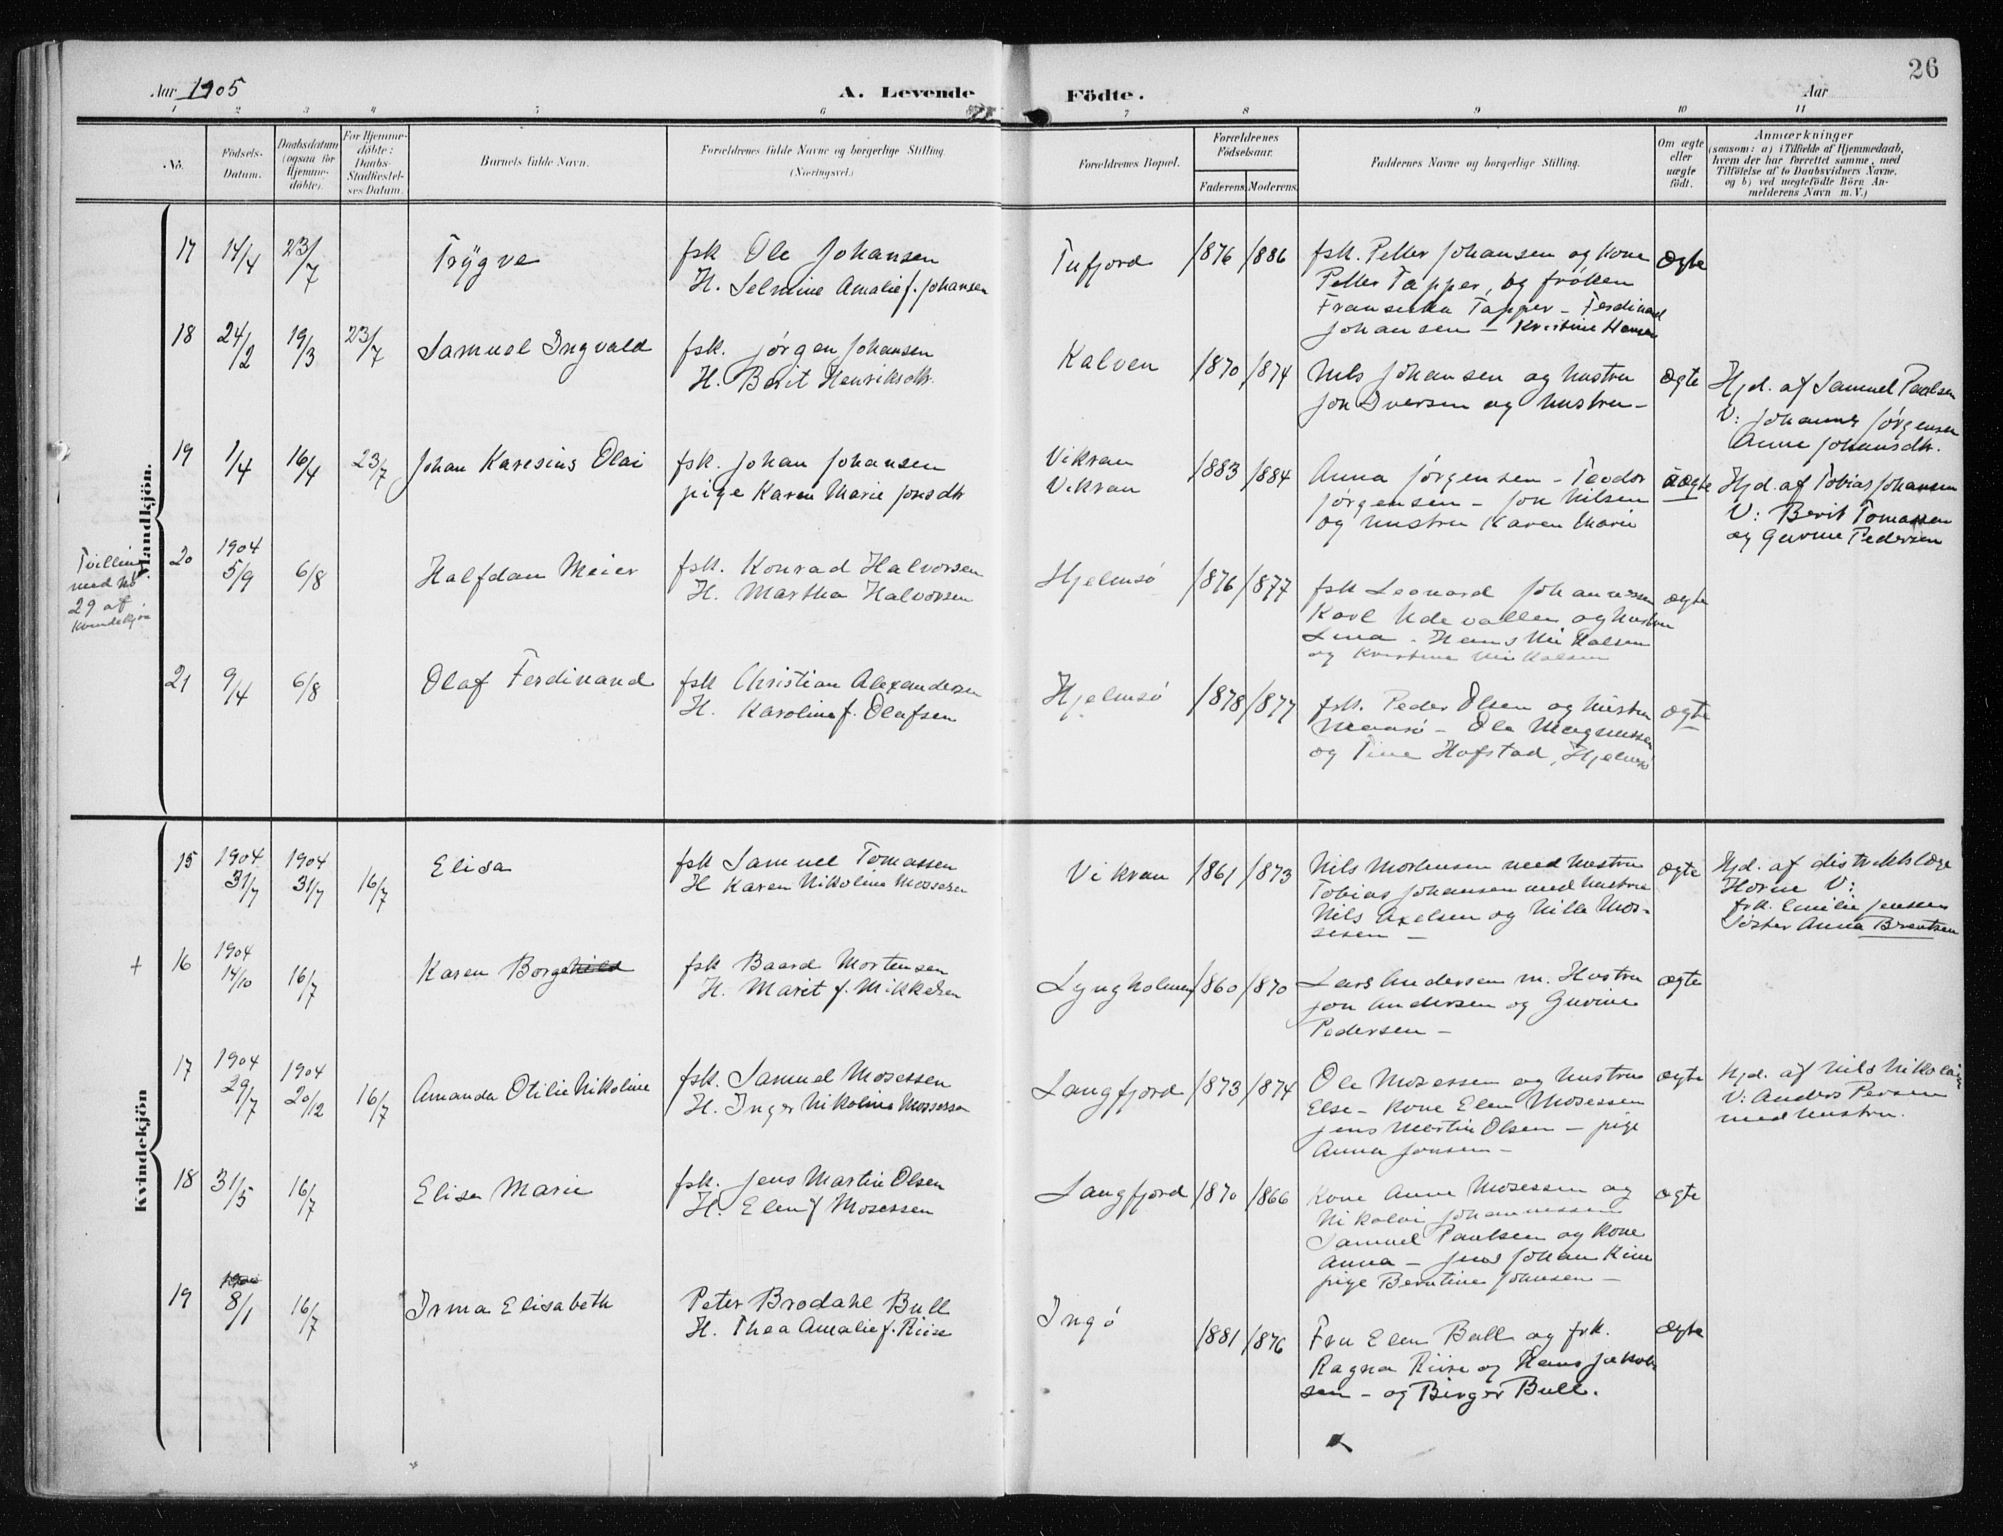 26
Aar 1905
A. Levende Födte.
Aar
1 2 3 4 5 6 7 8 9 10 11
No.
Födsels-
Datum.
Daabsdatum
(ogsaa for
Hjemme-
döbte).
For Hjemme-
döbte:
Daabs-
Stadfæstel-
ses Datum.
Barnets fulde Navn.
Forældrenes fulde Navne og borgerlige Stilling.
(Næringsvei.)
Forældrenes Bopæl.
Forældrenes
Födselsaar.
Faderens. Moderens.
Faddernes Navne og borgerlige Stilling.
Om ægte
eller
uægte
födt.
Anmærkninger
(saasom: a) i Tilfælde af Hjemmedaab,
hvem der har forrettet samme, med
Tilföielse af to Daabsvidners Navne,
og b) ved uægtefödte Börn An-
melderens Navn m. V.)
Mandkjön.
17 14/4 23/7 Trygve
fsk Ole Johansen
H. Selmine Amalie f. Johansen
Tufjord 1876 1886
fsk. Petter Johansen og kone
Petter Tapper, og frøken
Fransiska Tapper – Ferdinad
Johansen – Kristine Hansen
ægte
18 24/2 19/3 23/7 Samuel Ingvald
fsk. Jørgen Johansen
H. Berit Henriksdtr.
Kalven 1870 1874
Nils Johansen og hustru
Jon Iversen og hustru –
ægte
Hjd. af Samuel Paulsen
V: Johannes Jørgensen
Anne Johansdtr.
19 1/4 16/4 23/7 Johan Karesius Olai
fsk. Johan Johansen
pige Karen Marie Jonsdtr
Vikran
Vikran
1883 1884
Anna Jørgensen – Teodor
Jørgensen – Jon Nilsen
og hustru Karen Marie
uægte
Hjd. af Tobias Johansen
V: Berit Tomassen
og Gurine Pedersen
Tvilling
med No
29 af
Kvindekjøn
20 1904
5/9 6/8 Halfdan Meier
fsk. Konrad Halvorsen
H. Martha Halvorsen
Hjelmsö 1876 1877
fsk Leonard Johannessen
Karl Udevallen og hustru
Lina. Hans Mikkalsen
og Kristine Mikkalsen
ægte
21 9/4 6/8 Olaf Ferdinand
fsk Christian Alexandersen
H. Karoline f. Olafsen
Hjelmsö 1878 1877
fsk. Peder Olsen og hustru
Maasø – Ole Magnussen
og Tine Hofstad, Hjelmsö
ægte
Kvindekjön
15 1904
31/7 1904
31/7 16/7 Elisa
fsk Samuel Tomassen
H Karen Nikoline Mosesen
Vikran 1861 1873
Nils Mortensen med hustru
Tobias Johansen med hustru
Nils Axelsen og Nille Mos-
sesen –
ægte
Hjd. af distriktslæge
Horne V:
frk. Emilie Jensen
Søster Anna Brentsen
+ 16 1904
14/10 16/7 Karen Borgehild
fsk Baard Mortensen
H. Marit f. Mikkelsen
Lyngholmen 1860 1870
Lars Andersen m. Hustru
Jon Andersen og Gurine
Pedersen –
ægte
17 1904
29/7 1904
20/12 16/7 Amanda Otilie Nikoline
fsk. Samuel Mosessen
H. Inger Nikoline Mossesen
Langfjord 1873 1874
Ole Mosessen og hustru
Else – kone Elen Mosessen
Jens Martin Olsen – pige
Anna Jonsen –
ægte
Hjd. af Nils Nikolaisen
V: Anders Persen
med hustru.
18 31/5 16/7 Elisa Marie
fsk. Jens Martin Olsen
H. Elen f Mosessen
Langfjord 1870 1866
Kone Anne Mosessen og
Nikolai Johannessen
Samuel Paulsen og kone
Anna – Jens Johan Kim
pige Berntine Johnsen –
ægte
19 8/1 16/7 Irma Elisabeth
Peter Brodahl Bull
H. Thea Amalie f. Riise
Ingö 1881 1876
Fru Elen Bull og frk.
Ragna Riise og Hans Jakob-
sen – og Birger Bull.
ægte